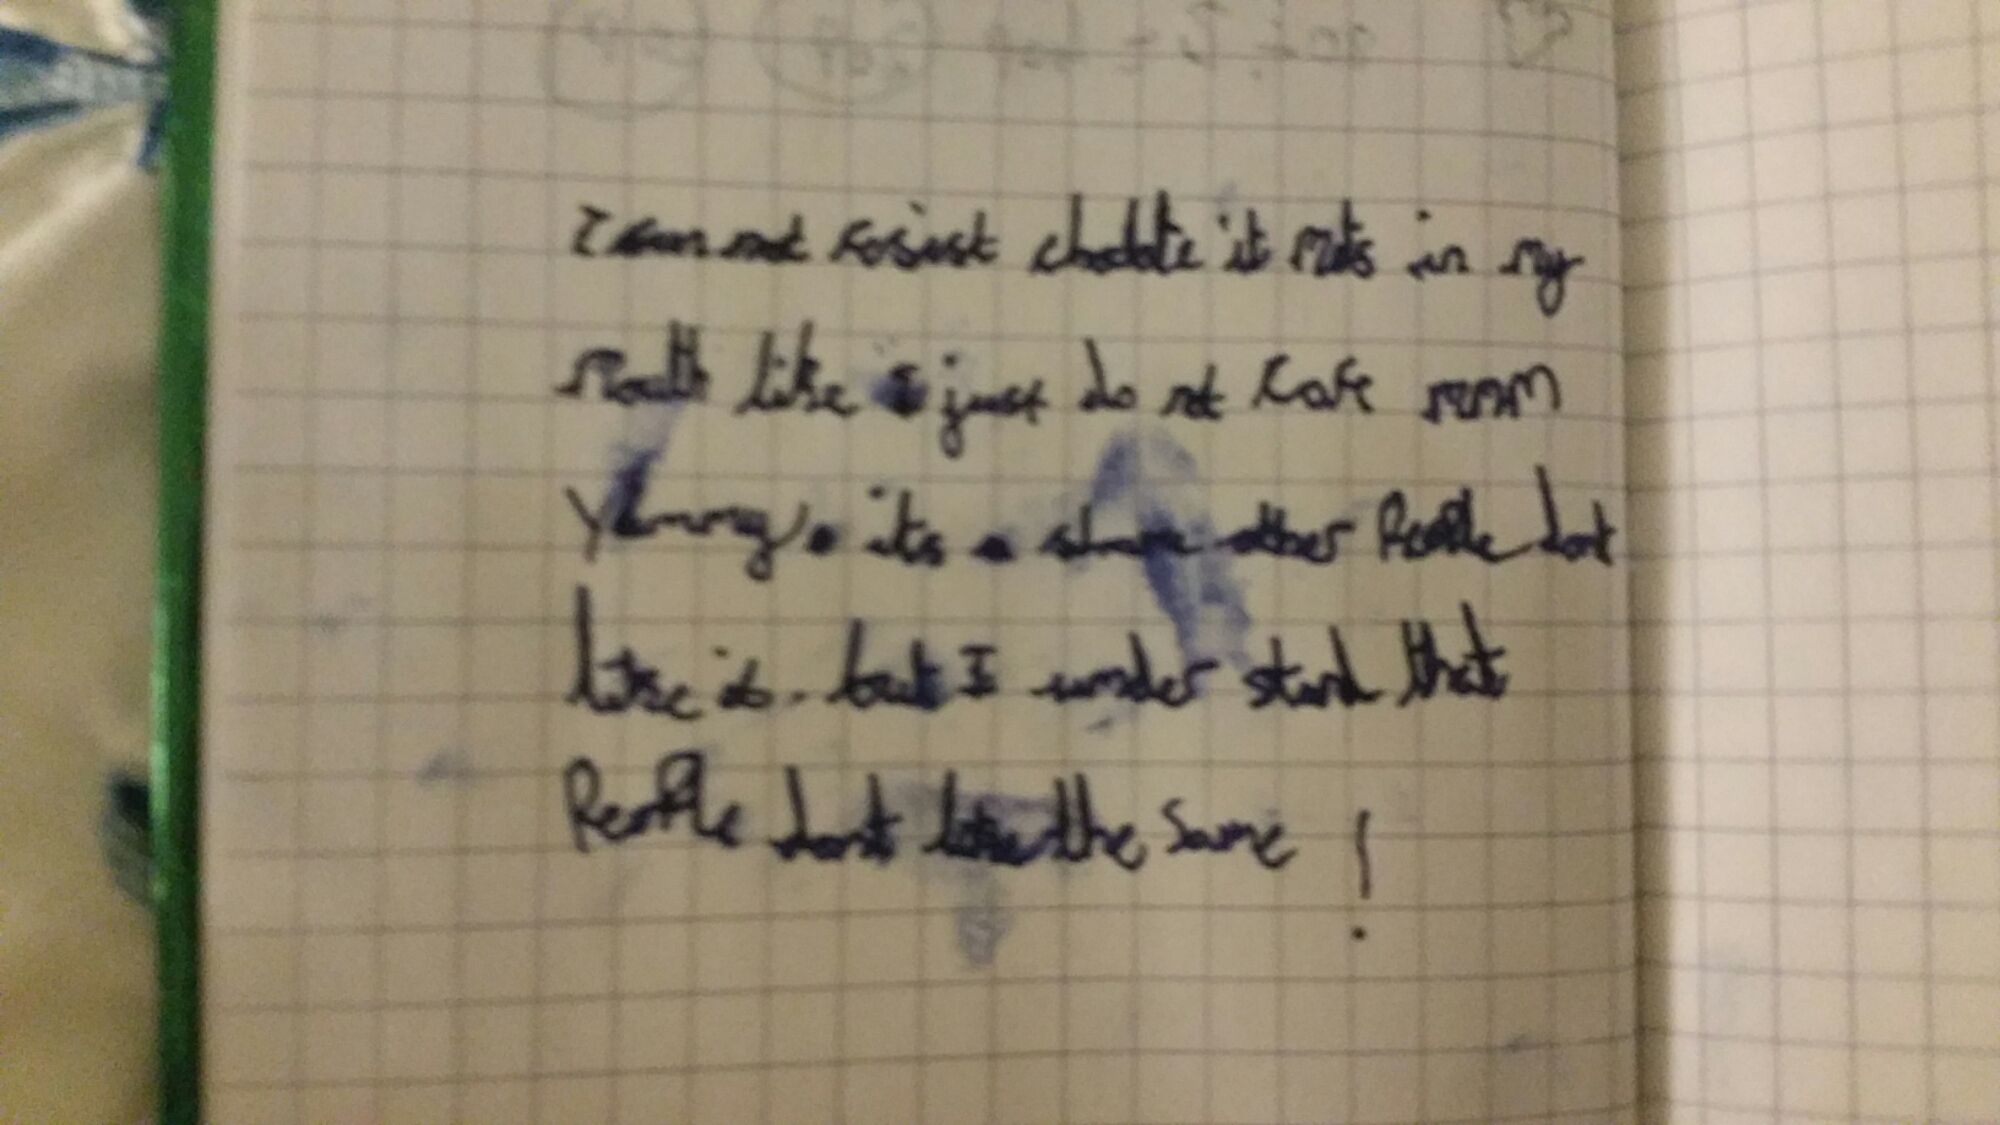 I can not resist choclate it melts in my
Mouth like i just do not care mmm
Yummy. its a shame other People dont
like it. but I under stand that
People dont like the same !